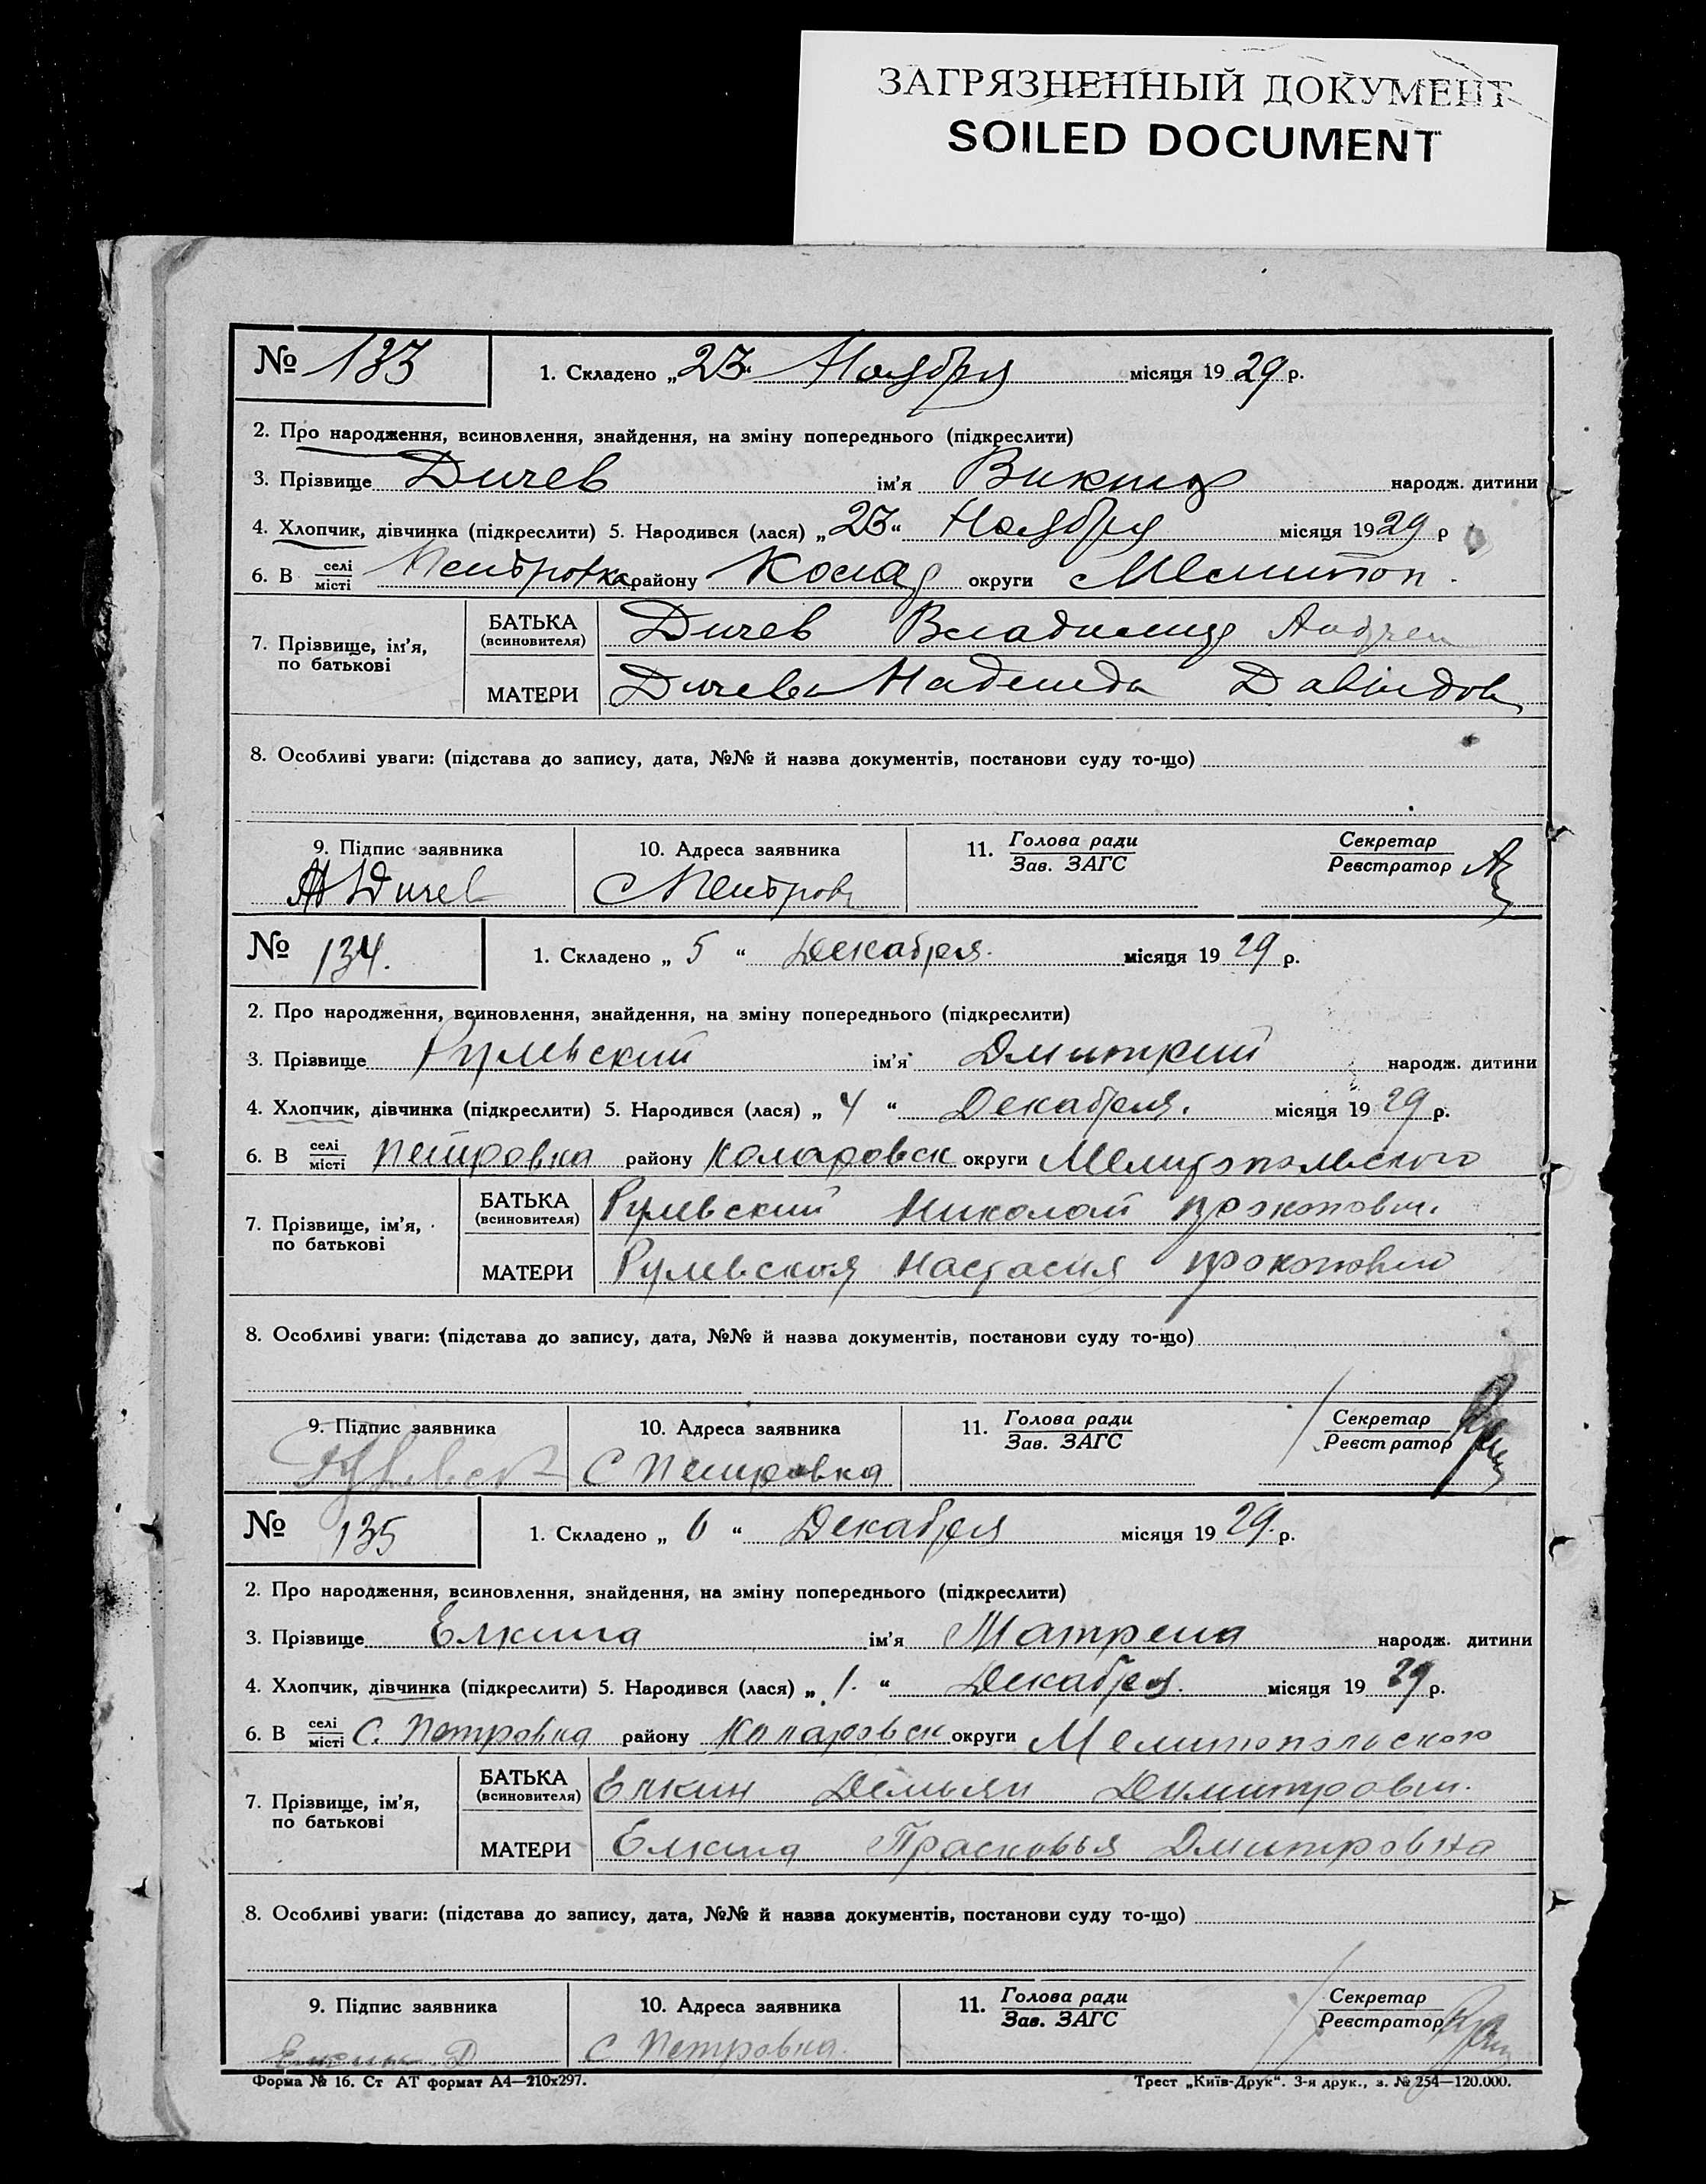 ЗАГРЯЗНЕННЫЙ ДОКУМЕНТ
SOILED DOCUMENT
№ 133 1. Складено „23“ Ноября місяця 1929 р.
2. Про народження, всиновлення, знайдення, на зміну попереднього (підкреслити)
3. Прізвище Дичев ім'я Виктор народж. дитини
4. Хлопчик, дівчинка (підкреслити) 5. Народився (лася) „23“ Ноября місяця 1929 р
6. В селі/місті Петровка району Колар округи Мелитоп.
7. Прізвище, ім'я, по батькові
БАТЬКА (всиновителя) Дичев Владимир Андреи
МАТЕРИ Дичева Надежда Давидов
8. Особливі уваги: (підстава до запису, дата, №№ й назва документів, постанови суду то-що)
9. Підпис заявника 10. Адреса заявника 11. Голова ради/Зав. ЗАГС Секретар/Реєстратор
Дичев С Петровк
№ 134. 1. Складено „ 5 “ Декабря. місяця 1929 р.
2. Про народження, всиновлення, знайдення, на зміну попереднього (підкреслити)
3. Прізвище Рулевский ім'я Дмитрий народж. дитини
4. Хлопчик, дівчинка (підкреслити) 5. Народився (лася) „ 4 “ Декабря. місяця 1929 р.
6. В селі/місті Петровка району Коларовск округи Мелитопольского
7. Прізвище, ім'я, по батькові
БАТЬКА (всиновителя) Рулевский Николай Прокопович.
МАТЕРИ Рулевская Настасия
8. Особливі уваги: (підстава до запису, дата, №№ й назва документів, постанови суду то-що)
9. Підпис заявника 10. Адреса заявника 11. Голова ради/Зав. ЗАГС Секретар/Реєстратор
С Петровка
№ 135 1. Складено „ 6 “ Декабря місяця 1929. р.
2. Про народження, всиновлення, знайдення, на зміну попереднього (підкреслити)
3. Прізвище Елкина ім'я Матрена народж. дитини
4. Хлопчик, дівчинка (підкреслити) 5. Народився (лася) „ 1. “ Декабря. місяця 1929 р.
6. В селі/місті С. Петровка району Коларовск округи Мелитопольского
7. Прізвище, ім'я, по батькові
БАТЬКА (всиновителя) Елкин Демьян Димитрович.
МАТЕРИ Елкина Прасковья Дмитровна
8. Особливі уваги: (підстава до запису, дата, №№ й назва документів, постанови суду то-що)
9. Підпис заявника 10. Адреса заявника 11. Голова ради/Зав. ЗАГС Секретар/Реєстратор
Елкин Д С. Петровка.
Форма № 16. Ст АТ формат А4—210х297. Трест „Київ-Друк“. 3-я друк., з. № 254—120.000.